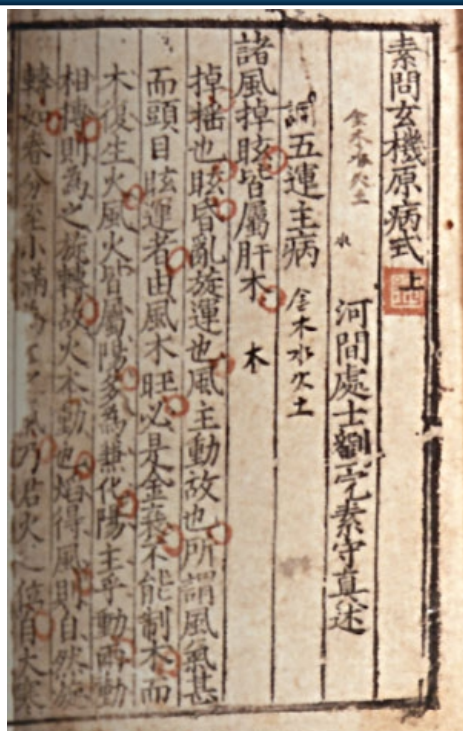 素問玄機原病式 上
金木水火土 水
河間處士劉完素守真述
五運主病 金木水火土
諸風掉眩皆屬肝木 木
掉搖也眩昏亂旋運也風主動故也所謂風氣甚
而頭目眩運者由風木旺必是金衰不能制木而
木復生火風火皆屬陽多為兼化陽主乎動兩動
相搏則為之旋轉故火本動也焰得風則自然旋
轉如春分至小滿 乃君火之位自大寒